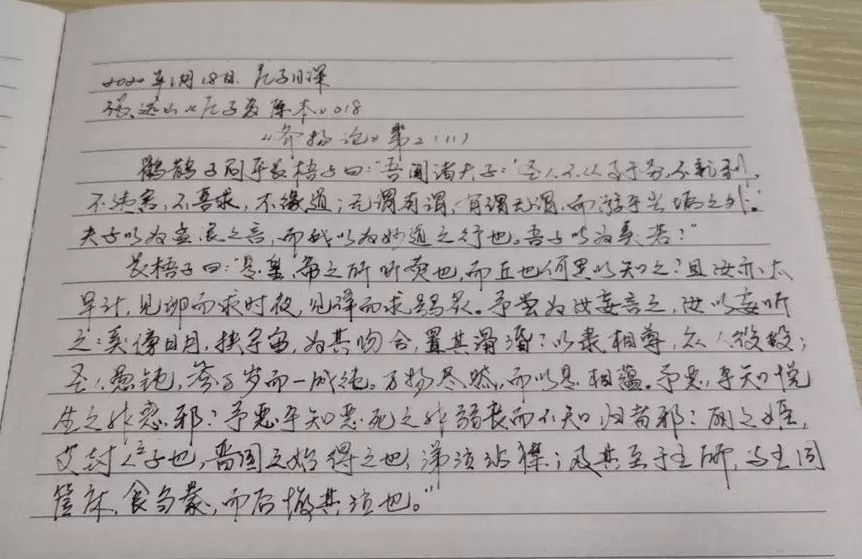 2020年1月18日 庄子日课
张远山《庄子复原本》018
《齐物论》第2(11)
鹊鹊子问乎长梧子曰:"吾闻诸夫子:'圣人不从事于务,不就利,
不违害,不喜求,不缘道;无谓有谓,有谓无谓,而游乎尘垢之外。'
夫子以为孟浪之言,而我以为妙道之行也。吾子以为奚若?"
长梧子曰:"是皇帝之所听荧也,而丘也何足以知之?且汝亦太
早计,见卵而求时夜,见弹而求鸮炙。予尝为汝妄言之,汝以妄听
之:奚傍日月,挟宇宙,为其吻合,置其滑涽?以隶相尊,众人役役;
圣人愚钝,参万岁而一成纯。万物尽然,而以是相蕴。予恶乎知悦
生之非惑邪?予恶乎知恶死之非弱丧而不知归者邪?丽之姬,
艾封人之子也,晋国之始得之也,涕泣沾襟;及其至于王所,与王同
筐床,食刍豢,而后悔其泣也。"